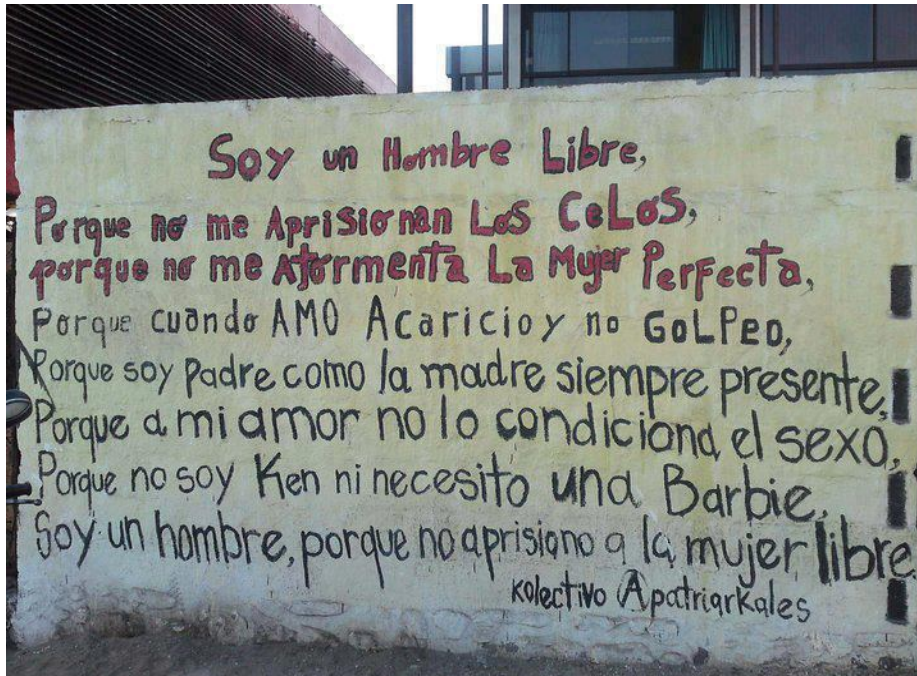 Soy un Hombre Libre,
Porque no me Aprisionan Los CeLos,
porque no me Atormenta La Mujer Perfecta,
Porque cuando AMO Acaricio y no GoLPeo,
Porque soy padre como la madre siempre presente,
Porque a mi amor no lo condiciona el sexo,
Porque no soy Ken ni necesito una Barbie,
Soy un hombre, porque no aprisiono a la mujer libre
Kolectivo Apatriarkales